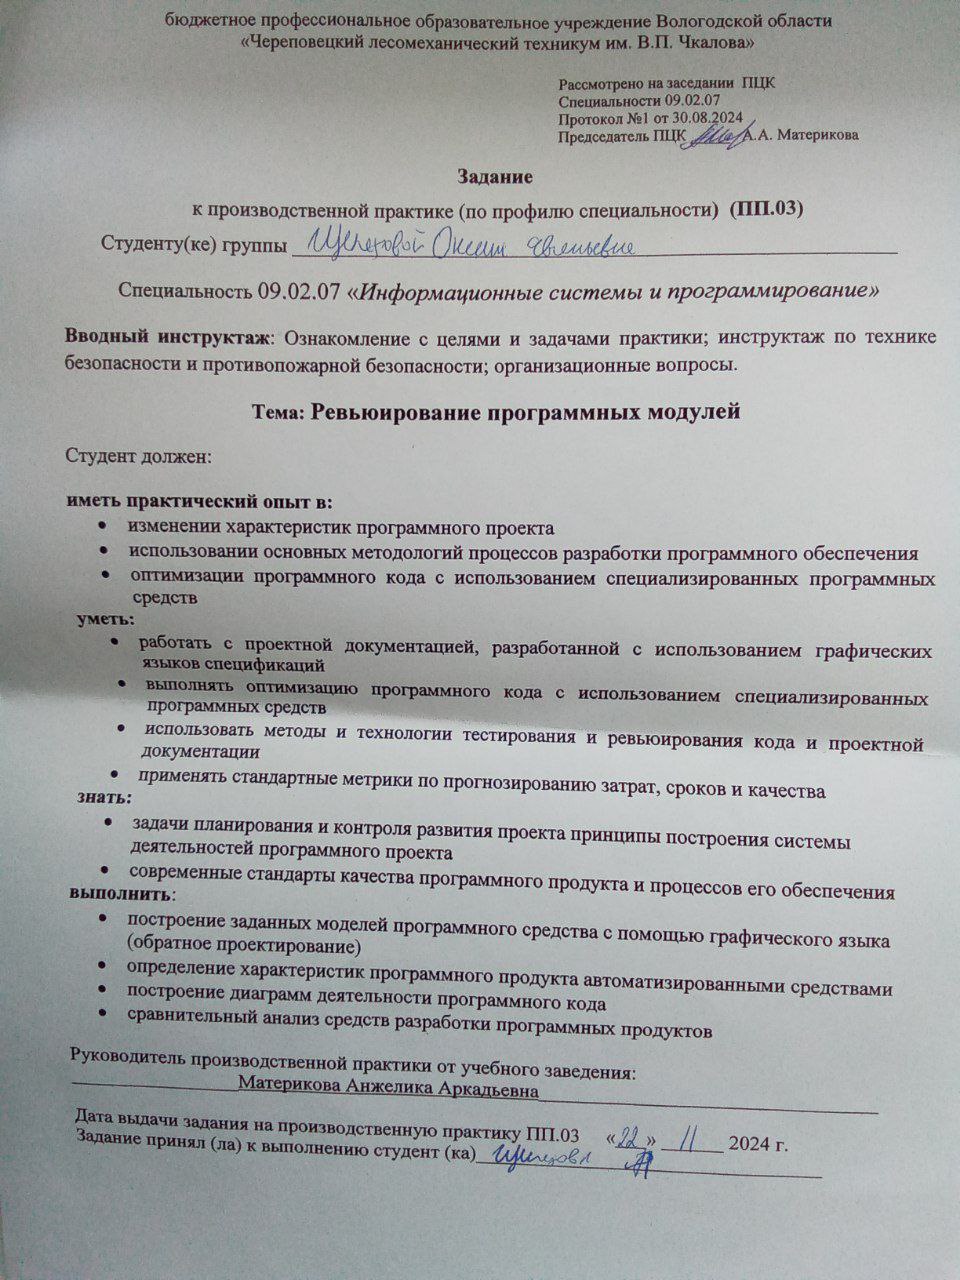 бюджетное профессиональное образовательное учреждение Вологодской области
«Череповецкий лесомеханический техникум им. В.П. Чкалова»
Рассмотрено на заседании ПЦК
Специальности 09.02.07
Протокол №1 от 30.08.2024
Председатель ПЦК А.А. Материкова
Задание
к производственной практике (по профилю специальности) (ПП.03)
Студенту(ке) группы
Специальность 09.02.07 «Информационные системы и программирование»
Вводный инструктаж: Ознакомление с целями и задачами практики; инструктаж по технике
безопасности и противопожарной безопасности; организационные вопросы.
Тема: Ревьюирование программных модулей
Студент должен:
иметь практический опыт в:
• изменении характеристик программного проекта
• использовании основных методологий процессов разработки программного обеспечения
• оптимизации программного кода с использованием специализированных программных
средств
уметь:
• работать с проектной документацией, разработанной с использованием графических
языков спецификаций
• выполнять оптимизацию программного кода с использованием специализированных
программных средств
• использовать методы и технологии тестирования и ревьюирования кода и проектной
документации
• применять стандартные метрики по прогнозированию затрат, сроков и качества
знать:
• задачи планирования и контроля развития проекта принципы построения системы
деятельностей программного проекта
• современные стандарты качества программного продукта и процессов его обеспечения
выполнить:
• построение заданных моделей программного средства с помощью графического языка
(обратное проектирование)
• определение характеристик программного продукта автоматизированными средствами
• построение диаграмм деятельности программного кода
• сравнительный анализ средств разработки программных продуктов
Руководитель производственной практики от учебного заведения:
Материкова Анжелика Аркадьевна
Дата выдачи задания на производственную практику ПП.03 «22» 11 2024 г.
Задание принял (ла) к выполнению студент (ка)